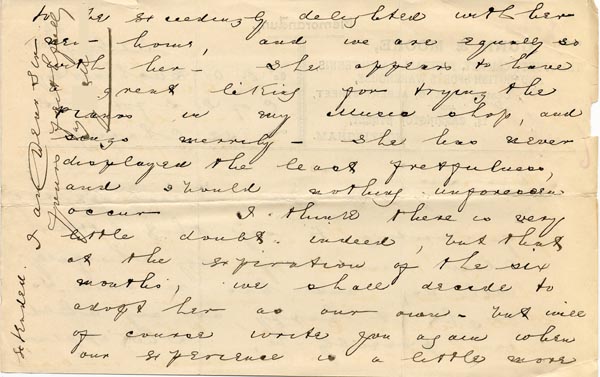 to be exceedingly delighted with her
new home, and we are equally so
with her - She appears to have
great liking for trying the
pianos in my Music shop, and
sings merrily - She has never
displayed the least fretfulness,
and should nothing unforeseen
occur I think there is very
little doubt indeed, but that
at the expiration of the six
months, we shall decide to
adopt her as our own - but will
of course write you again when
our experience is a little more
extended. I am Dear Sir
Yours
Memorandum